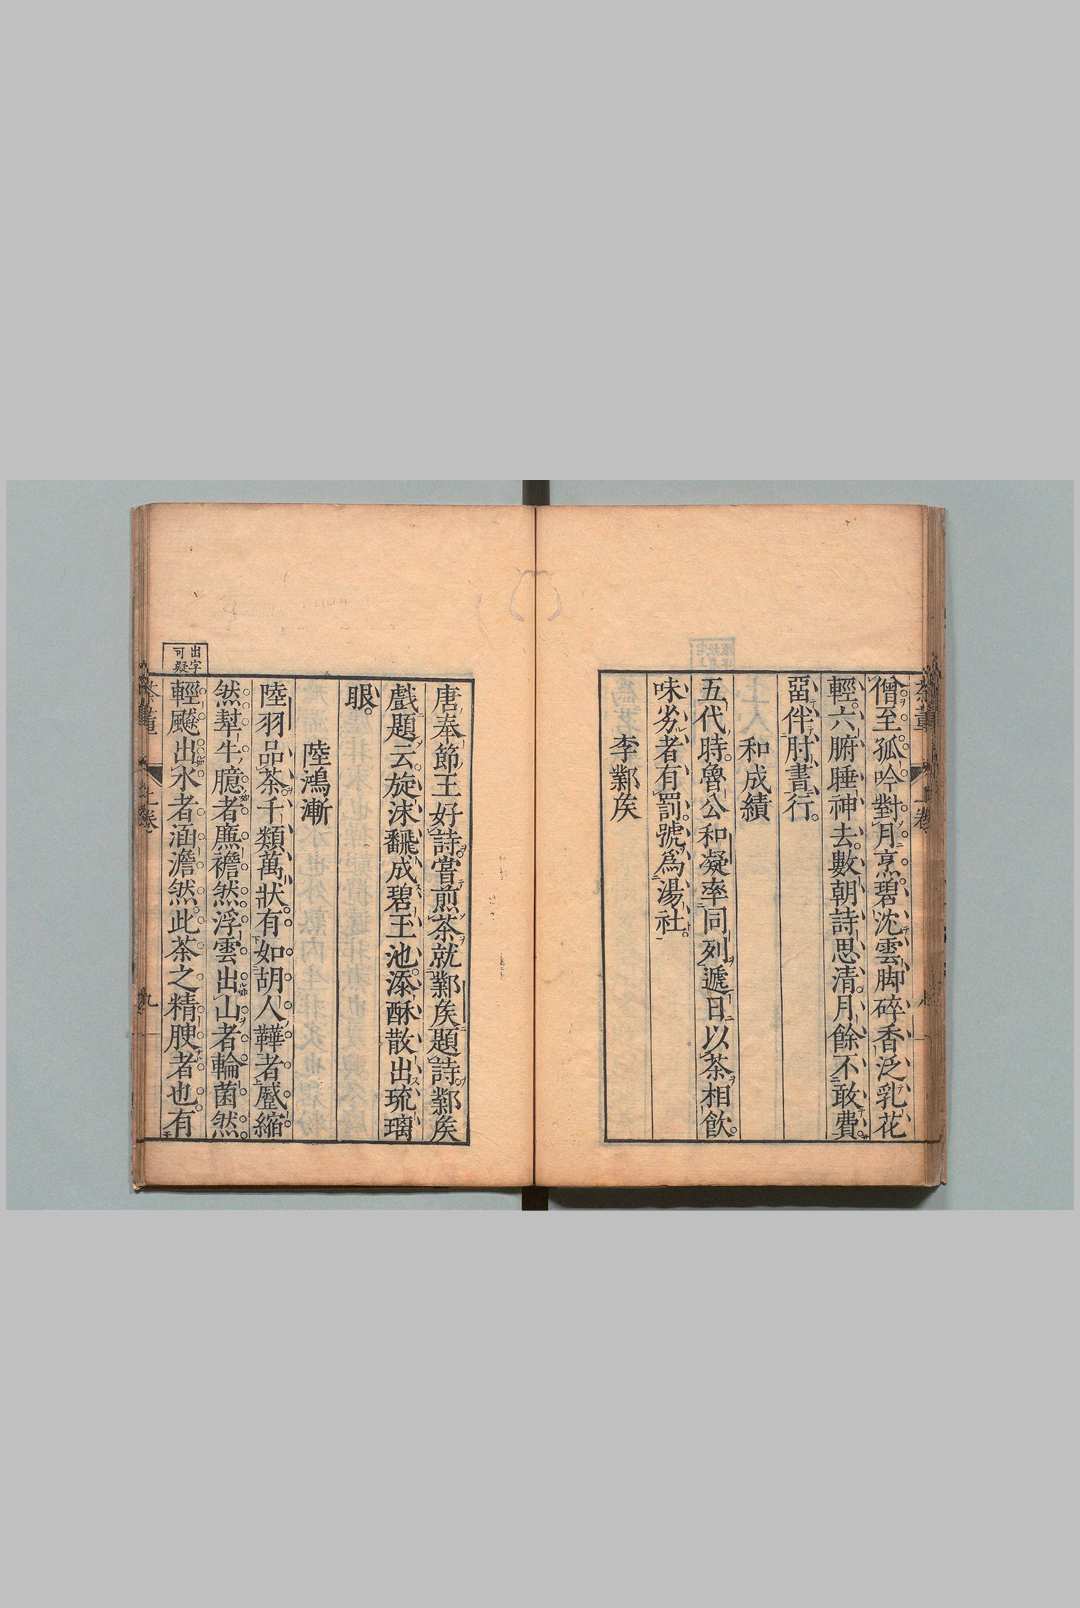 僧至孤吟對月烹碧沈雲脚碎香泛乳花
輕六腑睡神去數朝詩思清月餘不敢費
畱伴肘書行
和成績
五代時魯公和凝率同列遞日以茶相飲
味劣者有罰號爲湯社
李鄴矦
唐奉節王好詩嘗煎茶就鄴矦題詩鄴矦
戲題云旋沫翻成碧玉池添酥散出琉璃
眼
陸鴻漸
陸羽品茶千類萬狀有如胡人鞾者蹙縮
然犎牛臆者廉襜然浮雲出山者輪菌然
輕飇出水者涵澹然此茶之精腴者也有
出字
可疑
茶董
上卷
九